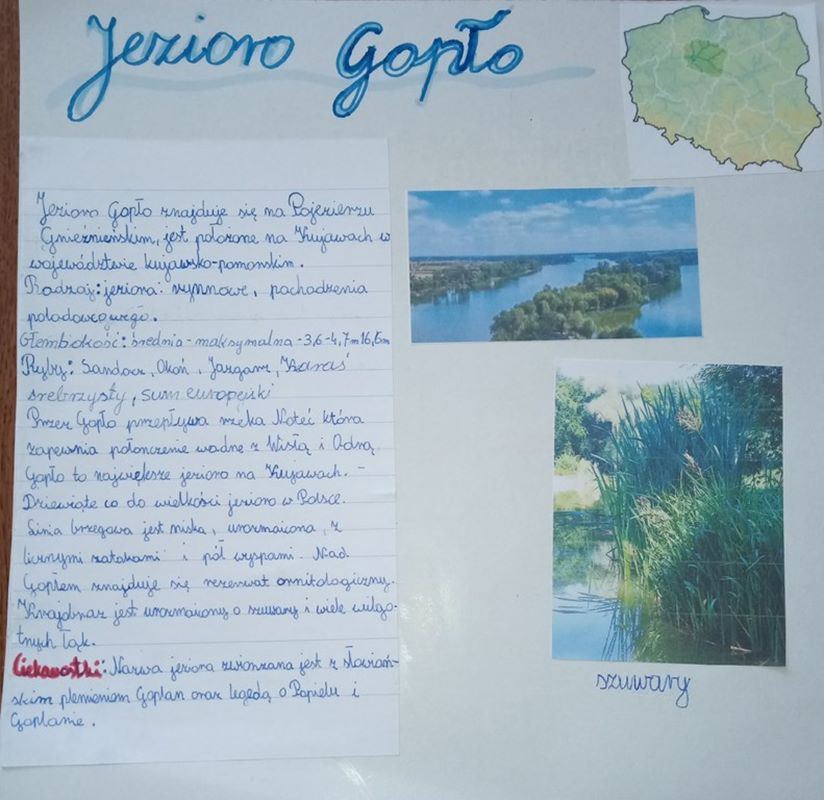 Jezioro Gopło
Jezioro Gopło znajduje się na Pojezierzu
Gnieźnieńskim, jest położone na Kujawach w
województwie kujawsko-pomorskim.
Rodzaj: jeziora rynnowe, pochodzenia
polodowcowego.
Głembokość: średnia - maksymalna - 3,6-4,7m 16,6m
Ryby: Sandacz, Okoń, Jazgarz, Karaś
srebrzysty, sum europejski
Przez Gopło przepływa rzeka Noteć która
zapewnia połonczenie wodne z Wisłą i Odrą.
Gopło to największe jezioro na Kujawach.
Dziewiąte co do wielkości jezioro w Polsce.
Linia brzegowa jest niska, urozmaicona, z
licznymi zatokami i pół wyspami. Nad
Gopłem znajduje się rezerwat ornitologiczny.
Krajobraz jest urozmaicony o szuwary i wiele wilgo-
tnych łąk.
Ciekawostki: Nazwa jeziora zwionzana jest z słowiań-
skim plemieniem Goplan oraz legędą o Popielu i
Goplanie.
szuwary